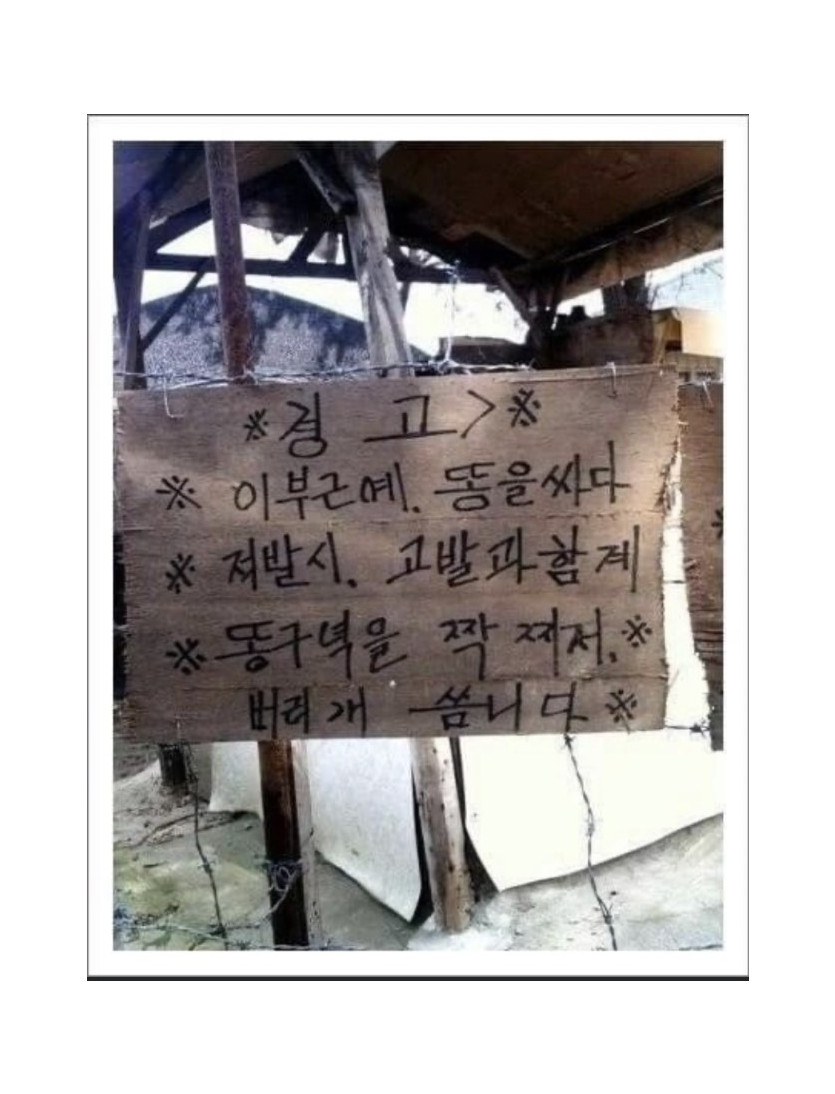 ※경 고>※
※ 이부근예. 똥을싸다
※ 적발시. 고발과함계
※ 똥구녁을 짝 찌저.※
버리개 씀니다※